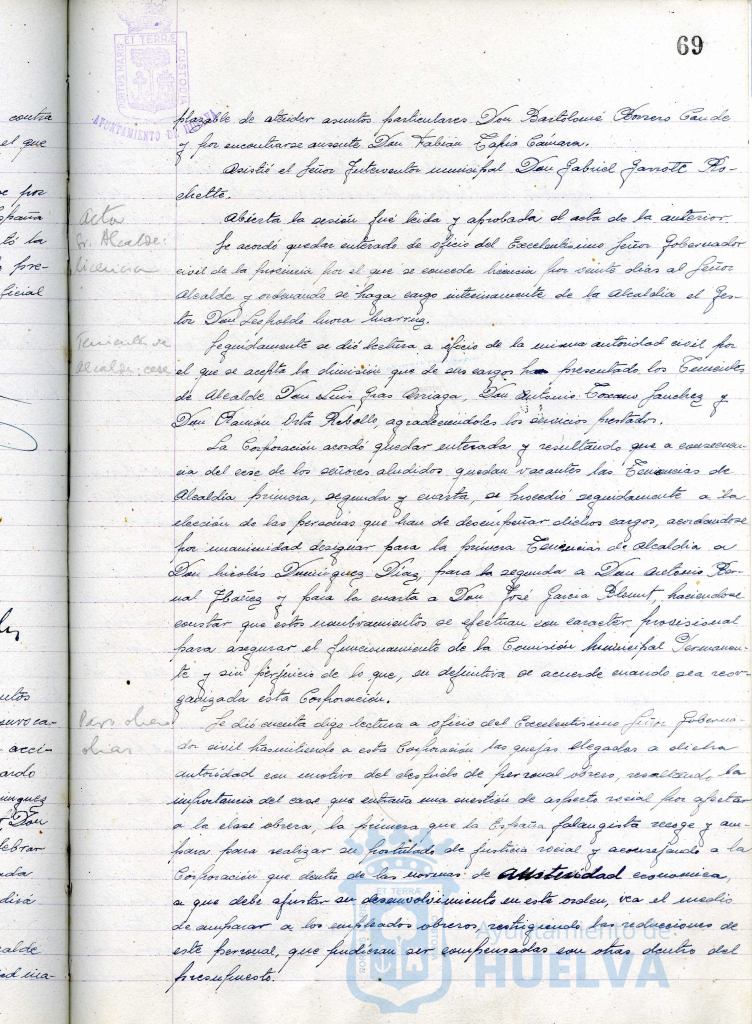 69
PORTUS MARIS ET TERRÆ CUSTODIA
AYUNTAMIENTO DE HUELVA
contra
el que
e por
España
tó la
pre-
ficial
ntos
onvoca-
acci-
ardo
inguez
Don
lebrar
nda
dirá
calde
ed ma-
Acta
Sr. Alcalde:
licencia
Tenientes de
Alcalde: cese
Paro obrero
obras
plazable de atender asuntos particulares Don Bartolomé Borrero Conde
y por encontrarse ausente Don Fabián Tapia Cámara.
Asistió el Señor Interventor municipal Don Gabriel Garrott Ro-
chette.
Abierta la sesión fué leida y aprobada el acta de la anterior
Se acordó quedar enterado de oficio del Excelentísimo Señor Gobernador
civil de la provincia por el que se concede licencia por veinte dias al Señor
Alcalde y ordenando se haga cargo interinamente de la Alcaldia el Ges-
tor Don Leopoldo Mora Marruz.
Seguidamente se dió lectura a oficio de la misma autoridad civil por
el que se acepta la dimisión que de sus cargos han presentado los Tenientes
de Alcalde Don Luis Gras Arriaga, Don Antonio Toscano Sanchez y
Don Ramón Orta Rebollo, agradeciendoles los servicios prestados.
La Corporación acordó quedar enterada y resultando que a consecuen-
cia del cese de los señores aludidos, quedan vacantes las Tenencias de
Alcaldia primera, segunda y cuarta, se procedió seguidamente a la
elección de las personas que han de desempeñar dichos cargos, acordandose
por unanimidad designar para la primera Tenencias de Alcaldia a
Don Nicolás Dominguez Diaz, para la segunda a Don Antonio Ber-
nal Ibáñez y para la cuarta a Don José Garcia Blount, haciendose
constar que estos nombramientos se efectuan con caracter provisional
para asegurar el funcionamiento de la Comisión Municipal Permanen-
te y sin perjuicio de lo que, en definitiva se acuerde cuando sea reor-
ganizada esta Corporación.
Se dió cuenta digo lectura a oficio del Excelentísimo Señor Goberna-
dor civil trasmitiendo a esta Corporación las quejas llegadas a dicha
autoridad con motivo del despido de personal obrero, resaltando la
importancia del caso que entraña una cuestión de aspecto social por afectar
a la clase obrera, la primera que la España falangista recoge y am-
para para realizar su postulado de justicia social y aconsejando a la
Corporación que dentro de las normas de austeridad economica,
a que debe ajustar su desenvolvimiento en este orden, vea el medio
de amparar a los empleados obreros, restrigiendo las reducciones de
este personal, que pudieran ser compensadas con otras dentro del
presupuesto.
ET TERRÆ
Ayuntamiento de
HUELVA